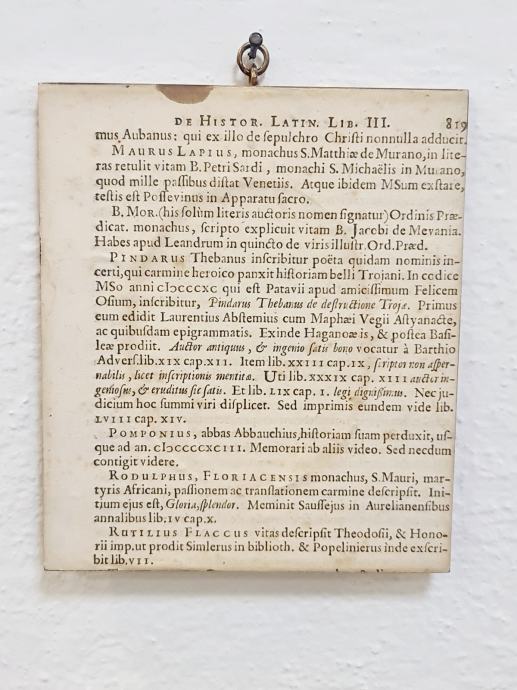 DE HISTOR. LATIN. LIB. III. 819
mus Aubanus: qui ex illo de sepulchro Christi nonnulla adducit.
MAURUS LAPIUS, monachus S. Matthiæ de Murano, in lite-
ras retulit vitam B. Petri Sardi, monachi S. Michaëlis in Murano,
quod mille passibus distat Venetiis. Atque ibidem MSum exstare,
testis est Possevinus in Apparatu sacro.
B. MOR. (his solùm literis auctoris nomen signatur) Ordinis Præ-
dicat. monachus, scripto explicuit vitam B. Jacobi de Mevania.
Habes apud Leandrum in quincto de viris illustr. Ord. Præd.
PINDARUS Thebanus inscribitur poëta quidam nominis in-
certi, qui carmine heroico panxit historiam belli Trojani. In codice
MSo anni cIↄccccxc qui est Patavii apud amicissimum Felicem
Osium, inscribitur, Pindarus Thebanus de destructione Trojæ. Primus
eum edidit Laurentius Abstemius cum Maphæi Vegii Astyanacte,
ac quibusdam epigrammatis. Exinde Haganoæ is, & postea Basi-
leæ prodiit. Auctor antiquus, & ingenio satis bono vocatur à Barthio
Advers. lib. XIX cap. XII. Item lib. XXIII cap. IX, scriptor non asper-
nabilis, licet inscriptionis mentitæ. Uti lib. XXXIX cap. XIII auctor in-
geniosus, & eruditus sic satis. Et lib. LIX cap. I. legi dignissimus. Nec ju-
dicium hoc summi viri displicet. Sed imprimis eundem vide lib.
LVIII cap. XIV.
POMPONIUS, abbas Abbauchius, historiam suam perduxit, us-
que ad an. cIↄccccxciii. Memorari ab aliis video. Sed necdum
contigit videre.
RODULPHUS, FLORIACENSIS monachus, S. Mauri, mar-
tyris Africani, passionem ac translationem carmine descripsit. Ini-
tium ejus est, Gloria, splendor. Meminit Saussejus in Aurelianensibus
annalibus lib. IV cap. X.
RUTILIUS FLACCUS vitas descripsit Theodosii, & Hono-
rii imp. ut prodit Simlerus in biblioth. & Popelinierus inde exscri-
bit lib. VII.